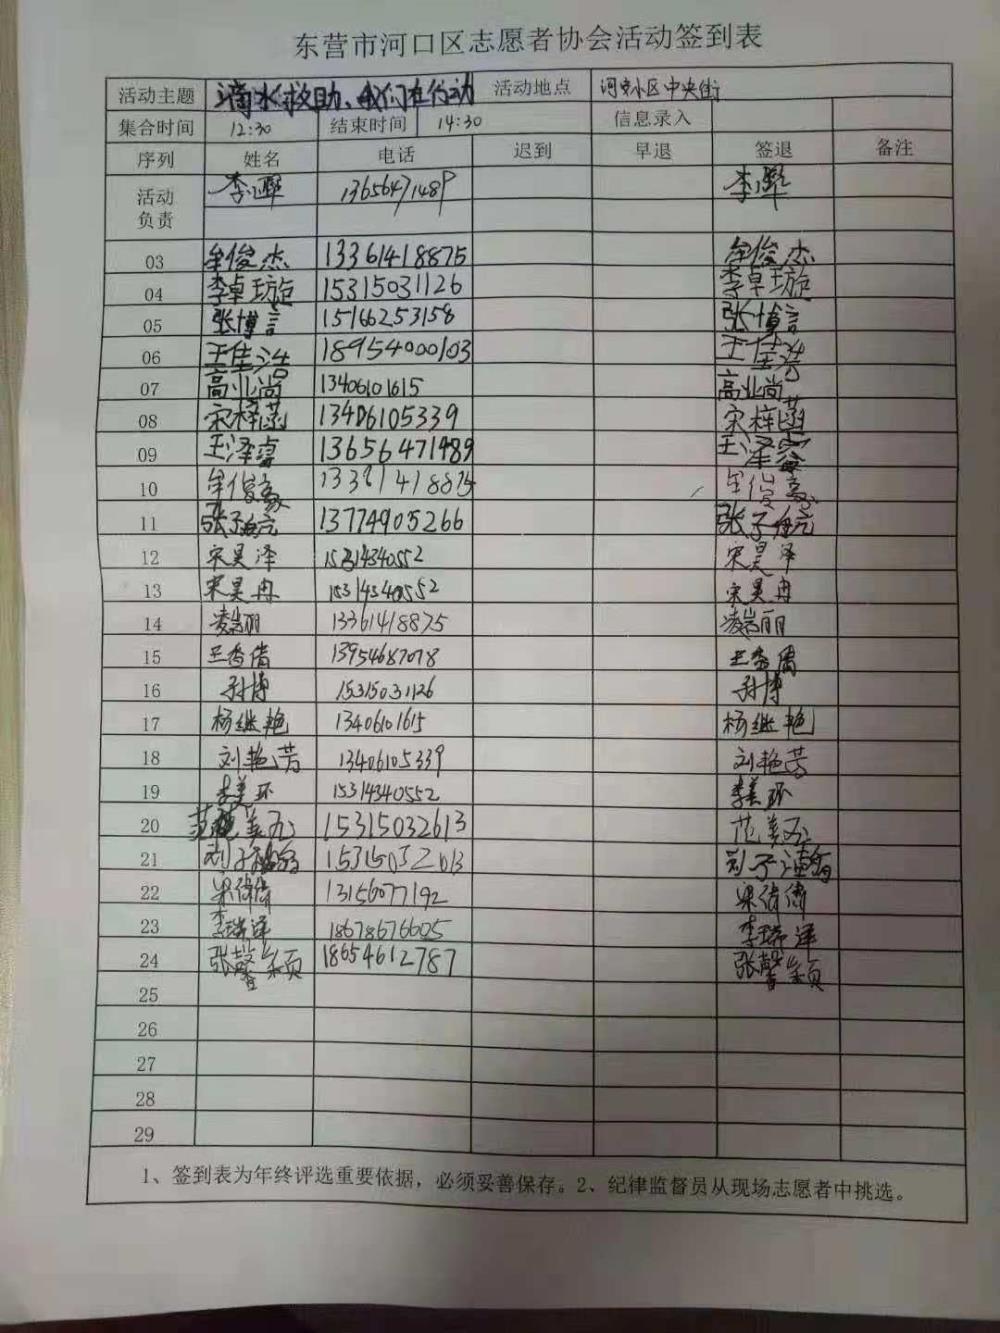 东营市河口区志愿者协会活动签到表
活动主题 滴水救助、我们在行动 活动地点 河安小区中央街
集合时间 12:30 结束时间 14:30 信息录入
序列 姓名 电话 迟到 早退 签退 备注
活动负责 李 13656471489 李
03 牟俊杰 13361418875 牟俊杰
04 李卓璇 15315031126 李卓璇
05 张博言 15166253158 张博言
06 王佳浩 18954000103 王佳浩
07 高业尚 13406101615 高业尚
08 宋梓菡 13406105339 宋梓菡
09 王泽睿 13656471489 王泽睿
10 牟俊豪 13361418875 牟俊豪
11 张子航 13774905266 张子航
12 宋昊泽 15314340552 宋昊泽
13 宋昊冉 15314340552 宋昊冉
14 凌岩丽 13361418875 凌岩丽
15 王香倩 13954687078 王香倩
16 孙博 15315031126 孙博
17 杨继艳 13406101615 杨继艳
18 刘艳芳 13406105339 刘艳芳
19 李美环 15314340552 李美环
20 范美玉 15315032613 范美玉
21 刘子 15315032613 刘子
22 梁倩倩 13156077192 梁倩倩
23 李瑞泽 18678676605 李瑞泽
24 张馨颖 18654612787 张馨颖
25
26
27
28
29
1、签到表为年终评选重要依据，必须妥善保存。2、纪律监督员从现场志愿者中挑选。